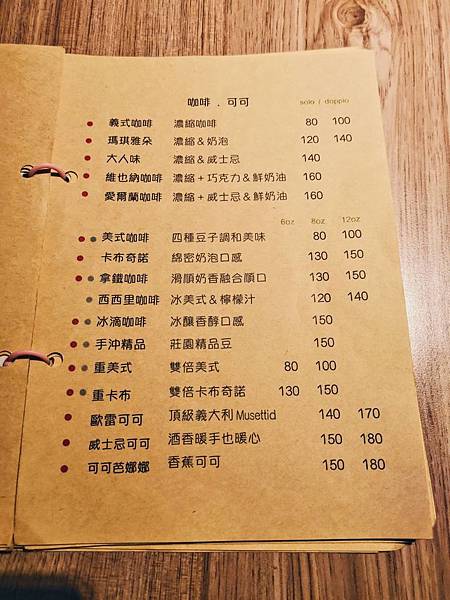 咖啡．可可 solo / doppio
義式咖啡 濃縮咖啡 80 100
瑪琪雅朵 濃縮＆奶泡 120 140
大人味 濃縮＆威士忌 140
維也納咖啡 濃縮＋巧克力＆鮮奶油 160
愛爾蘭咖啡 濃縮＋威士忌＆鮮奶油 160
6oz 8oz 12oz
美式咖啡 四種豆子調和美味 80 100
卡布奇諾 綿密奶泡口感 130 150
拿鐵咖啡 滑順奶香融合順口 130 150
西西里咖啡 冰美式＆檸檬汁 120 140
冰滴咖啡 冰釀香醇口感 150
手沖精品 莊園精品豆 150
重美式 雙倍美式 80 100
重卡布 雙倍卡布奇諾 130 150
歐雷可可 頂級義大利Musettid 140 170
威士忌可可 酒香暖手也暖心 150 180
可可芭娜娜 香蕉可可 150 180